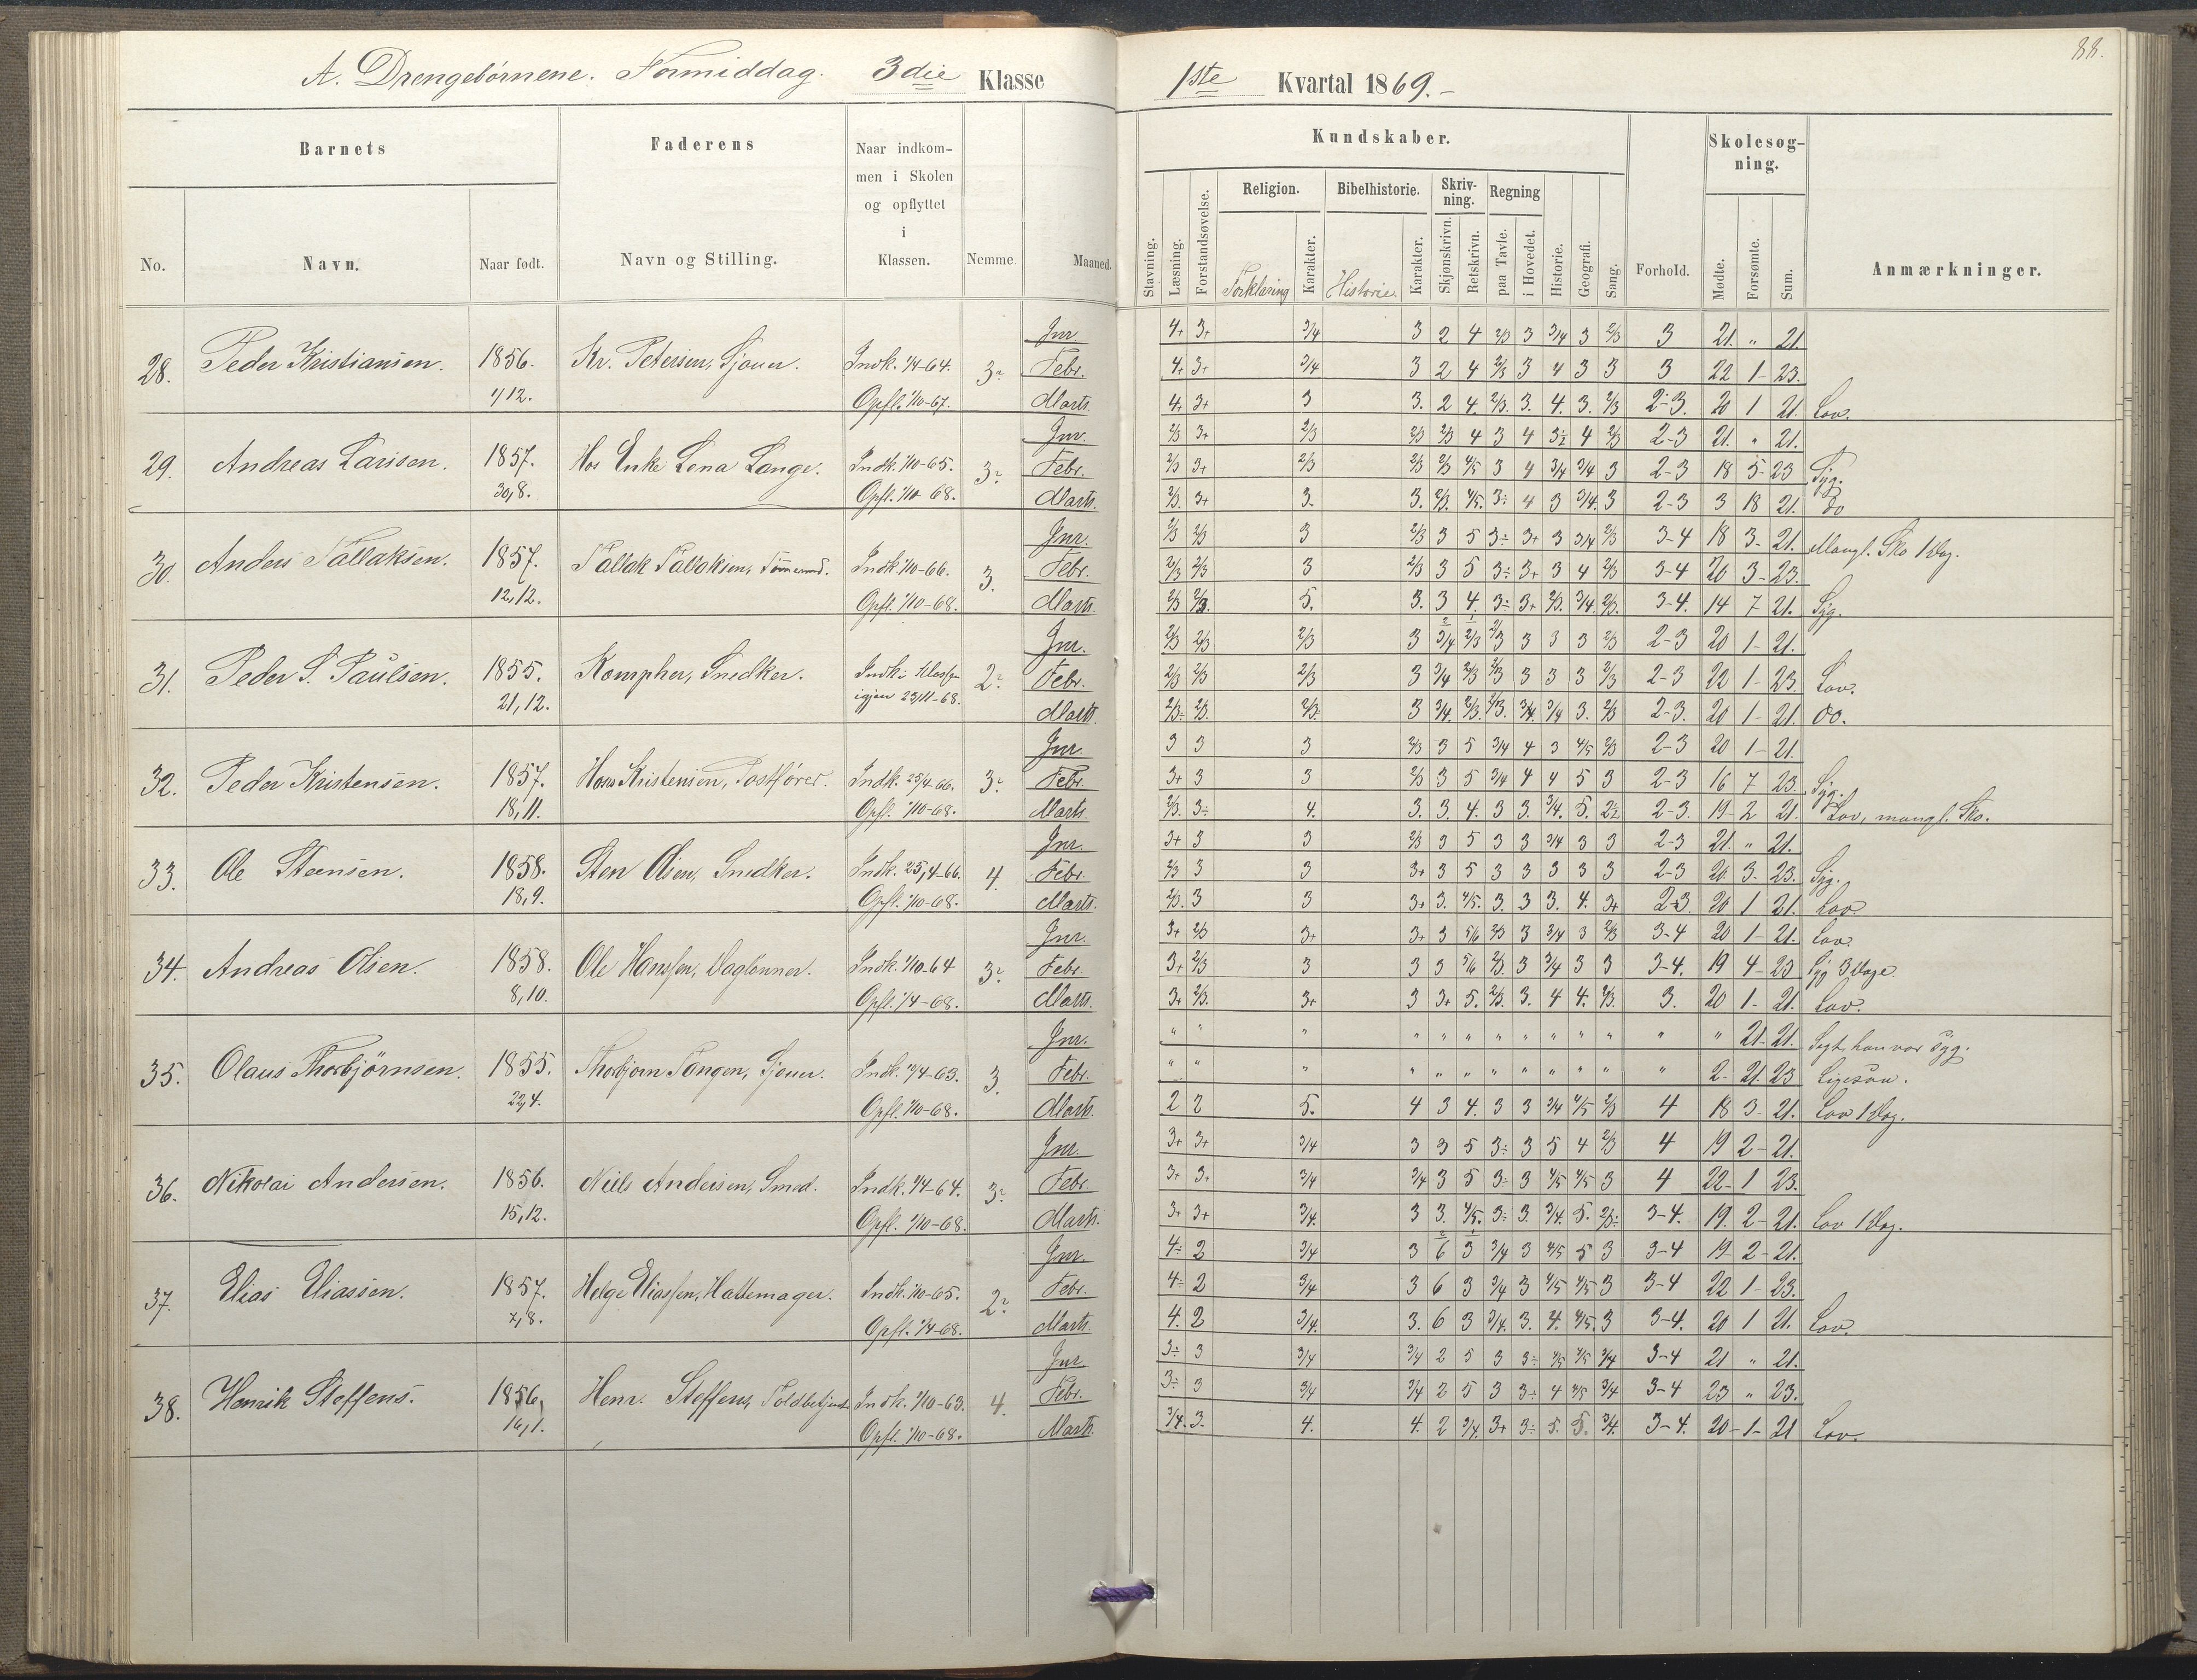 A. Drengebørnene. Formiddag. 3die Klasse
1ste Kvartal 1869.-
88.
Barnets
Faderens
Naar indkom-
men i Skolen
og opflyttet
i
Klassen.
No. Navn. Naar født. Navn og Stilling. Nemme. Maaned.
Kundskaber. Skolesøg-
ning.
Religion. Bibelhistorie. Skriv-
ning. Regning
Stavning. Læsning. Forstandsøvelse. Forklaring Karakter. Historie. Karakter. Skjønskrivn. Retskrivn. paa Tavle. i Hovedet. Historie. Geografi. Sang. Forhold. Mødte. Forsømte. Sum. Anmærkninger.
28. Peder Kristiansen. 1856. Kr. Petersen, Sjouer. Indk. 1/4-64. 3
1/12. Opfl. 1/10-67.
Jnr. 4+ 3+ 3/4 3 2 4 2/3 3 3/4 3 2/3 3 21. " 21.
Febr. 4+ 3+ 3/4 3 2 4 2/3 3 4 3 3 3 22 1- 23.
Marts 4+ 3+ 3 3. 2 4. 2/3. 3. 4. 3. 2/3 2-3. 20 1 21. Lov.
29. Andreas Larssen. 1857. Hos Enke Lena Lange. Indk. 1/10-65. 3
30,8. Opfl. 1/10 68.
Jnr. 2/3 3+ 2/3 2/3 2/3 4 3 4 3÷ 4 2/3 2-3 21. " 21.
Febr. 2/3 3+ 2/3 2/3 2/3 4/5 3 4 3/4 3/4 3 2-3 18 5- 23 Syg.
Marts. 2/3. 3+ 3. 3. 2/3. 4/5. 3÷ 4 3 3/4. 3 2-3 3 18 21. do
30. Anders Tallaksen. 1857. Tallak Tallaksen, Tømmermd. Indk. 1/10-66. 3.
12,12. Opfl. 1/10-68.
Jnr. 2/3 2/3 3 2/3 3 5 3÷ 3+ 3 3/4 2/3 3-4 18 3- 21. Mangl. Sko 1 Dag.
Febr. 2/3 2/3 3 2/3 3 5 3÷ 3+ 3 4 2/3 3-4 20 3- 23.
Marts. 2/3 2/3. 5. 3. 3 4. 3÷ 3+ 2/3. 3/4. 2/3. 3-4. 14 7 21. Syg.
31. Peder S. Paulsen. 1855. Kompher, Snedker. Indk. i Klassen 2
21,12. igjen 23/11-68.
Jnr. 2/3 2/3 2/3 3 3/4 2/3 2/3 3 3 3 2/3 2-3 20 1- 21.
Febr. 2/3 2/3 2/3 3 3/4 2/3 2/3 3 3 3 2/3 2-3 22 1- 23. Lov.
Marts 2/3÷ 2/3. 2/3. 3 3/4. 2/3. 2/3. 3/4. 3/4 3. 2/3 2-3. 20 1- 21. do.
32. Peder Kristensen. 1857. Hans Kristensen, Postfører. Indk. 25/4-66. 3
18,11. Opfl. 1/10-68.
Jnr. 3 3 3 2/3 3 5 3/4 4 3 4/5 2/3 2-3 20 1- 21.
Febr. 3+ 3 3 2/3 3 5 3/4 4 4 5 3 2-3 16 7 23. Syg.
Marts 2/3. 3÷ 4. 3. 3. 4. 3 3. 3/4. 5. 2÷ 2-3. 19- 2 21. Lov, mangl. Sko.
33. Ole Steensen. 1858. Sten Olsen, Snedker. Indk. 25,4-66. 4.
18,9. Opfl. 1/10-68.
Jnr. 3+ 3 3 2/3 3 5 3 3 3/4 3 3 2-3 21. " 21.
Febr. 2/3 3 3 3+ 3 5 3 3 3 3 3 2-3 20. 3- 23. Syg.
Marts. 2/3. 3 3 3+ 3. 4/5. 3. 3 3. 4. 3+ 2-3 20 1 21. Lov
34. Andreas Olsen. 1858. Ole Hanssen, Daglønner. Indk. 1/10-64 3
8,10. Opfl. 1/4-68.
Jnr. 3+ 2/3 3+ 3+ 3 5/6 2/3 3 3/4 3 2/3 3-4 20 1- 21. Lov.
Febr. 3+ 2/3 3 3 3 5/6 2/3. 3 3/4 3 3 3-4. 19 4- 23 Syg 3 Dage.
Marts. 3+ 2/3. 3+ 3 3+ 5. 2/3. 3. 4 4. 2/3. 3. 20 1- 21. Lov.
35. Olaus Thorbjørnsen. 1855. Thorbjørn Tangen, Sjouer. Indk. 1/4-63. 3.
22,4. Opfl. 1/10-68.
Jnr. " " " " " " " " " " " " " 21- 21. Sagt, han var syg.
Febr. " " " " " " " " " " " " 2- 21. 23 Ligesaa.
Marts. 2 2 5. 4 3 4. 3 3 3/4 4/5 2/3 4 18 3- 21. Lov 1 Dag.
36. Nikolai Andersen. 1856. Niels Andersen, Smed. Indk. 1/4-64. 3
15,12. Opfl. 1/10-68.
Jnr. 3+ 3+ 3/4 3 3 5 3÷ 3 5 4 2/3 4 19 2- 21.
Febr. 3+ 3+ 3/4 3/4 3 5 3÷ 3 4/5 4/5 3 4 22- 1 23.
Marts. 3+ 3+ 3/4. 3 3. 4/5. 3÷ 3. 3/4. 5. 2/3÷ 3-4. 19. 2- 21. Lov 1 Dag.
37. Elias Eliassen. 1857. Helge Eliassen, Hattemager. Indk. 1/10-65. 2
7,8. Opfl. 1/4-68.
Jnr. 4÷ 2 3/4 3 6 3 3/4 3 4/5 5 3 3-4 19- 2- 21.
Febr. 4÷ 2 3/4 3 6 3 3/4 3 4/5 4/5 3 3-4 22 1- 23.
Marts. 4. 2 3/4. 3. 6 3 3/4. 3. 4. 4/5. 3 3-4. 20 1 21. Lov.
38. Henrik Steffens. 1856, Henr. Steffens, Toldbetjent Indk. 1/10-63. 4.
16,1. Opfl. 1/10-68.
Jnr. 3÷ 3 3/4 3/4 2 5 3 3÷ 4/5 4/5 3/4 3-4 21 " 21.
Febr. 3÷ 3 3/4 3/4 2 5 3 3÷ 4 4/5 3/4 3-4 23 " 23.
Marts. 3/4. 3. 4. 4. 2 3/4. 3+ 3÷ 5. 5. 3/4. 3-4. 20- 1- 21 Lov.